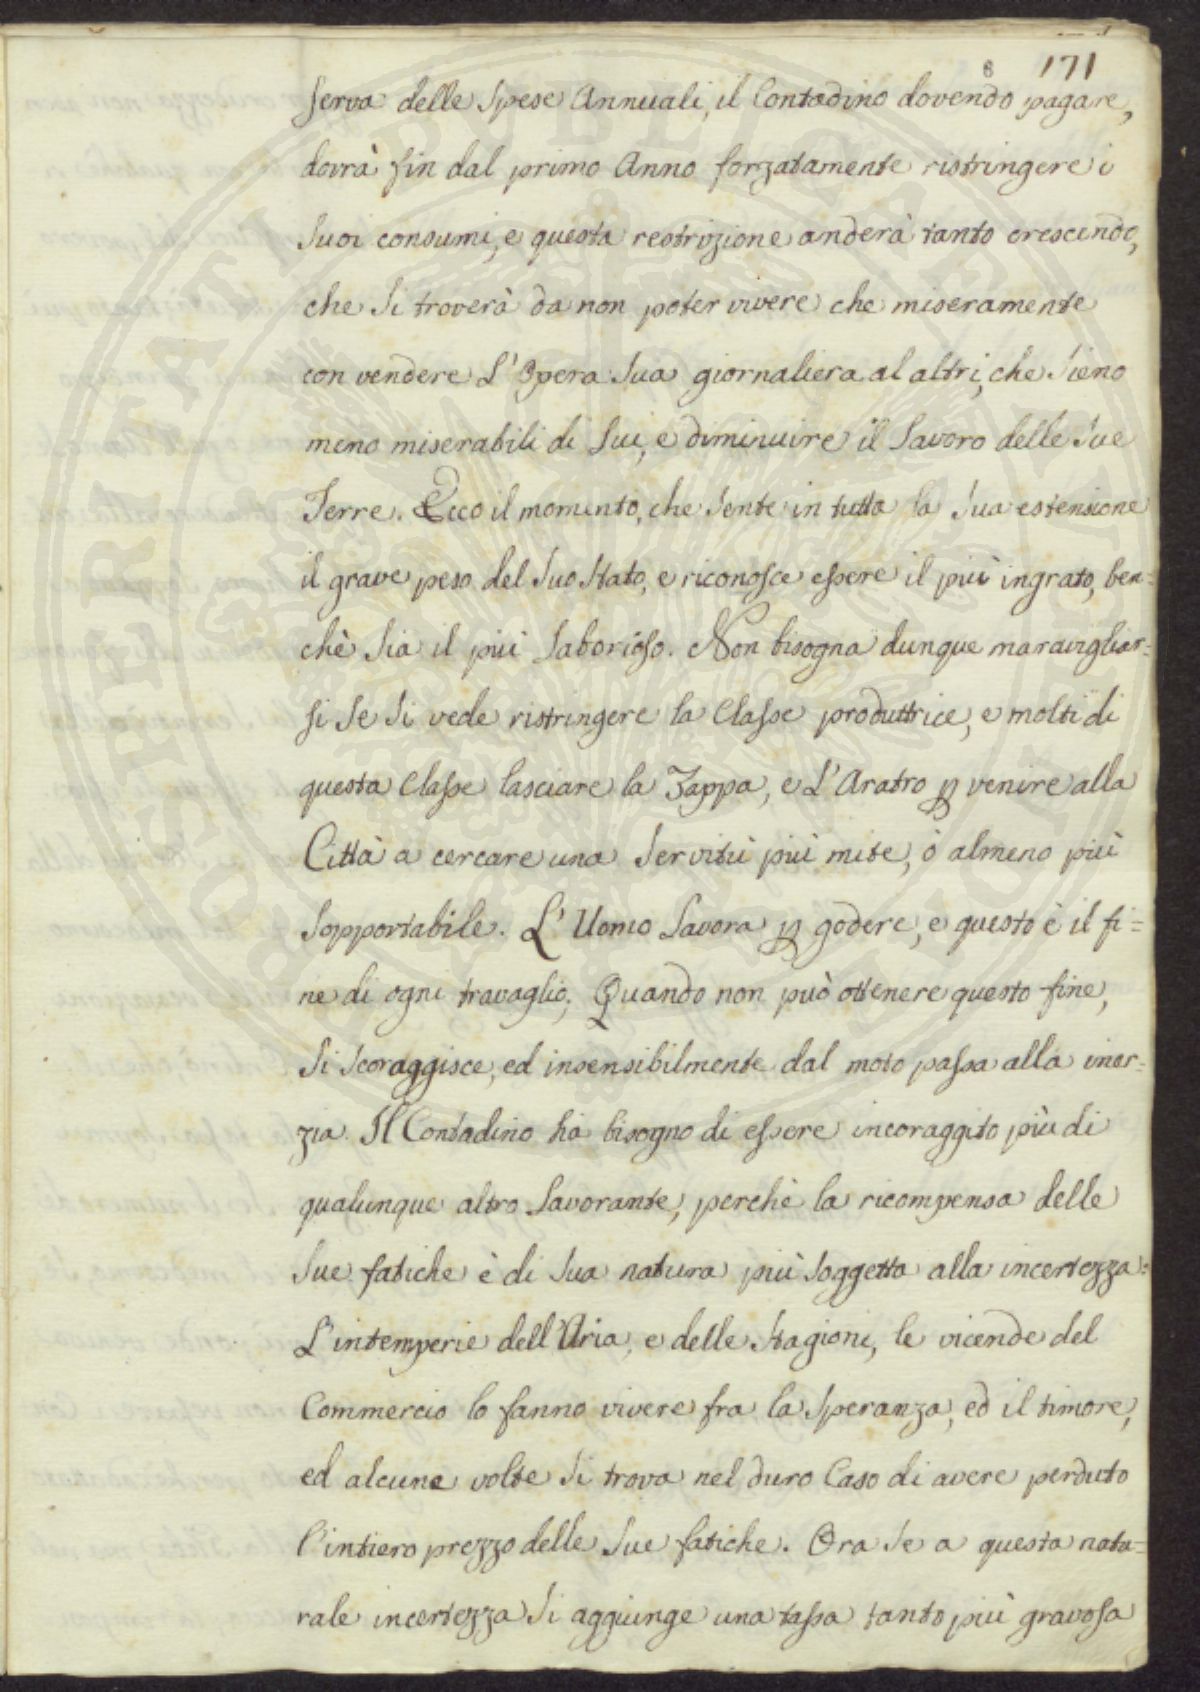 6 171
serva delle Spese Annuali, il Contadino dovendo pagare,
dovrà fin dal primo Anno forzatamente ristringere i
Suoi consumi, e questa restrizione anderà tanto crescendo,
che Si troverà da non poter vivere che miseramente
con vendere L'Opera Sua giornaliera al altri, che Sieno
meno miserabili di Lui, e diminuire il Lavoro delle Sue
Terre. Ecco il momento, che Sente in tutta la Sua estensione
il grave peso del Suo Stato, e riconosce essere il più ingrato, ben=
chè Sia il più Laborioso. Non bisogna dunque maravigliar=
si Se Si vede ristringere la Classe produttrice, e molti di
questa Classe lasciare la Zappa, e L'Aratro p venire alla
Città a cercare una Servitù più mite, ò almeno più
Sopportabile. L'Uomo Lavora p godere, e questo è il fi=
ne di ogni travaglio; Quando non può ottenere questo fine,
Si Scoraggisce, ed insensibilmente dal moto passa alla iner=
zia. Il Contadino ha bisogno di essere incoraggito più di
qualunque altro Lavorante, perchè la ricompensa delle
Sue fatiche è di Sua natura più Soggetta alla incertezza:
L'intemperie dell'Aria, e delle Stagioni, le vicende del
Commercio lo fanno vivere fra la Speranza, ed il timore,
ed alcune volte Si trova nel duro Caso di avere perduto
l'intiero prezzo delle Sue fatiche. Ora Se a questa natu=
rale incertezza Si aggiunge una tassa tanto più gravosa